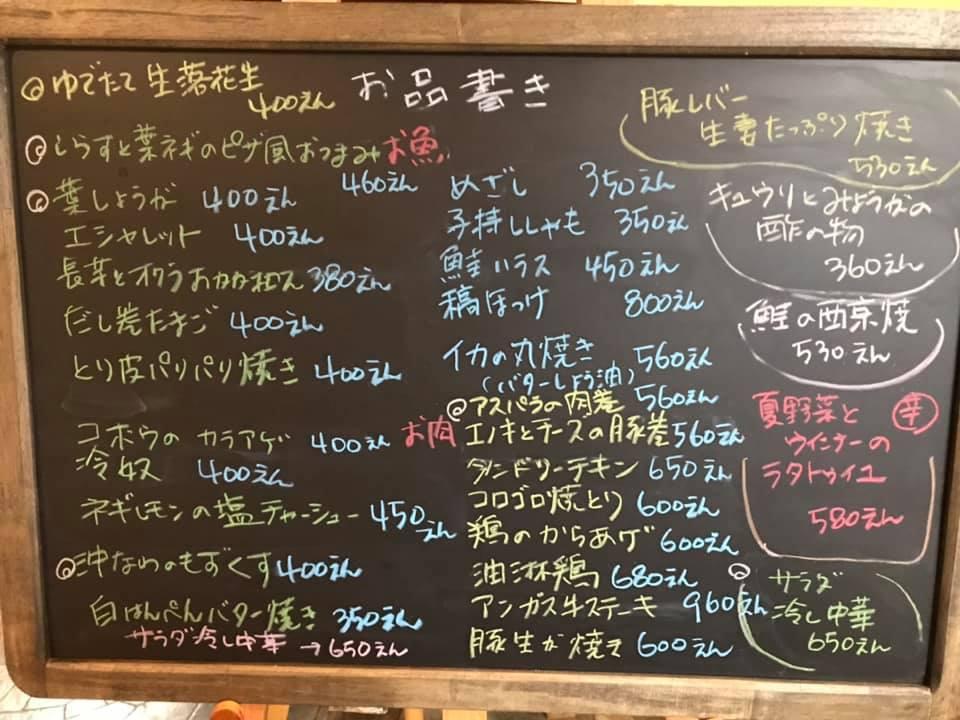 お品書き
◎ゆでたて生落花生
400えん
◎しらすと葉ネギのピザ風おつまみ
460えん
◎葉しょうが 400えん
エシャレット 400えん
長芋とオクラおかか和え 380えん
だし巻たまご 400えん
とり皮パリパリ焼き 400えん
ゴボウのカラアゲ 400えん
冷奴 400えん
ネギレモンの塩チャーシュー 450えん
◎沖なわのもずくす 400えん
白はんぺんバター焼き 350えん
サラダ冷し中華 →650えん
お魚
めざし 350えん
子持ししゃも 350えん
鮭ハラス 450えん
縞ほっけ 800えん
イカの丸焼き 560えん
(バターしょう油)
お肉
◎アスパラの肉巻 560えん
エノキとチーズの豚巻 560えん
タンドリーチキン 650えん
コロゴロ焼とり 600えん
鶏のからあげ 600えん
油淋鶏 680えん
アンガス牛ステーキ 960えん
豚生が焼き 600えん
豚レバー
生姜たっぷり焼き
530えん
キュウリとみょうがの
酢の物
360えん
鮭の西京焼
530えん
夏野菜と 辛
ウインナーの
ラタトゥイユ
580えん
◎サラダ
冷し中華
650えん